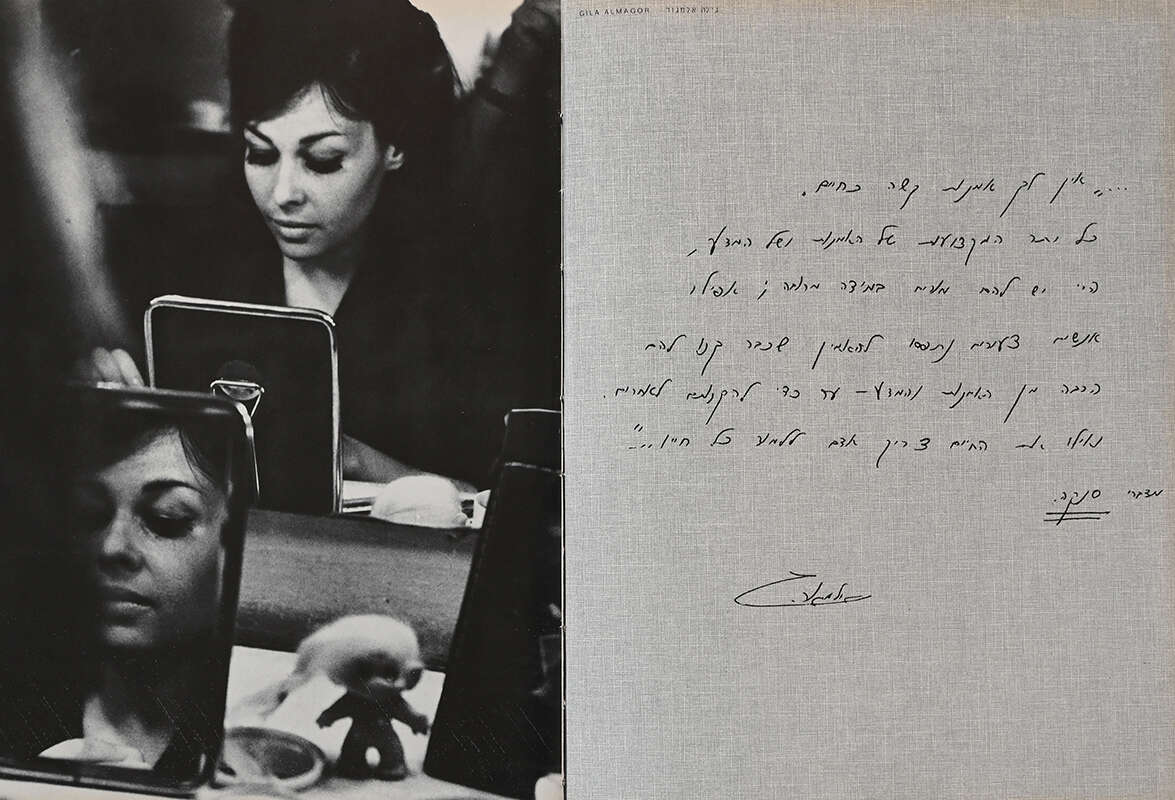 GILA ALMAGOR גילה אלמגור
..."אין לך אמנות קשה כחיים.
כל יתר המקצועות של האמנות ושל המדע,
הרי יש להם מורים במידה מרובה; אפילו
אנשים צעירים נתפסו להאמין שכבר קנו להם
הרבה מן האמנות והמדע – עד כדי להקנותם לאחרים.
ואילו את החיים צריך אדם ללמוד כל חייו..."
מדברי סנקה.